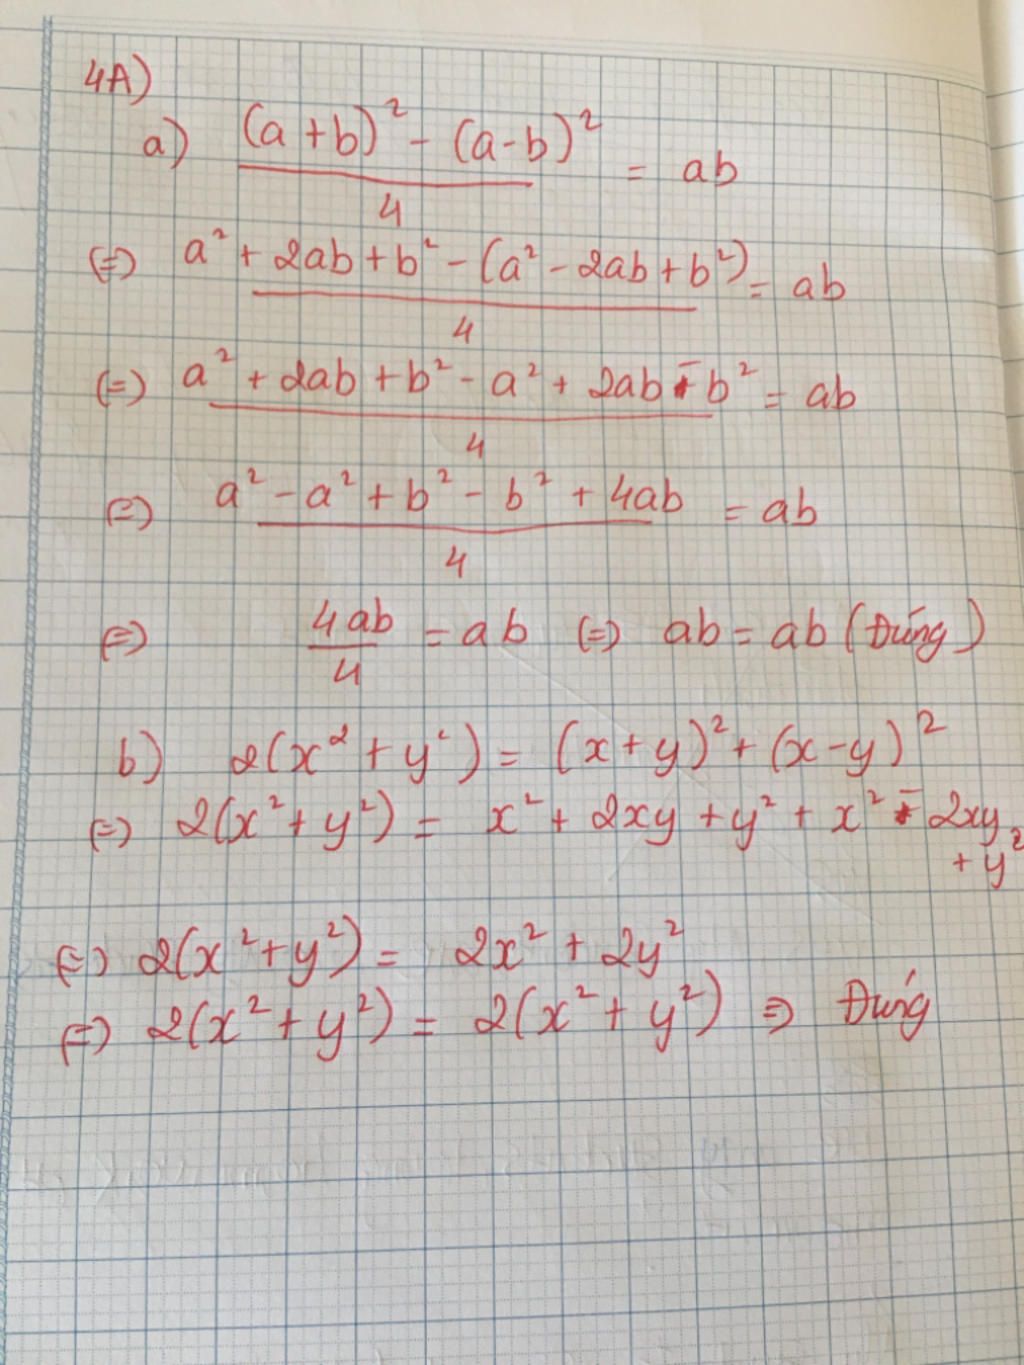 4A)
a) ((a+b)² - (a-b)²)/4 = ab
(=) (a² + 2ab + b² - (a² - 2ab + b²))/4 = ab
(=) (a² + 2ab + b² - a² + 2ab - b²)/4 = ab
(=) (a² - a² + b² - b² + 4ab)/4 = ab
(=) 4ab/4 = ab (=) ab = ab (Đúng)
b) 2(x² + y²) = (x+y)² + (x-y)²
(=) 2(x² + y²) = x² + 2xy + y² + x² - 2xy
+ y²
(=) 2(x² + y²) = 2x² + 2y²
(=) 2(x² + y²) = 2(x² + y²) => Đúng